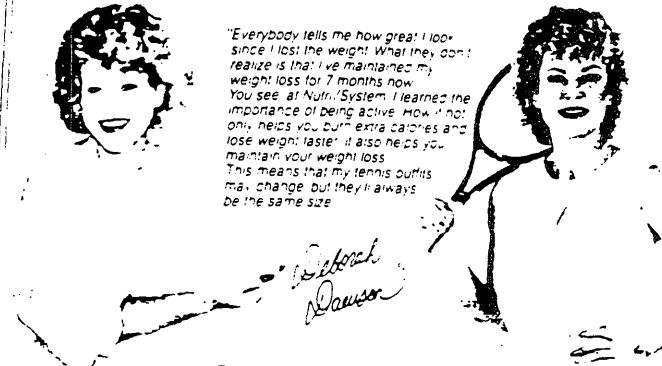 "Everybody tells me how great I look
since I lost the weight. What they don't
realize is that I've maintained my
weight loss for 7 months now.
You see, at Nutri/System I learned the
importance of being active. How it not
only helps you burn extra calories and
lose weight faster, it also helps you
maintain your weight loss.
This means that my tennis outfits
may change, but they'll always
be the same size
Deborah
Dawson